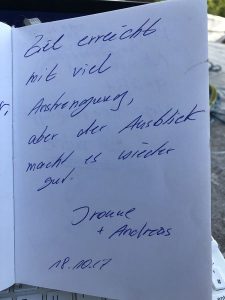 Ziel erreicht
mit viel
Anstrengung,
aber der Ausblick
macht es wieder
gut.
Yvonne
+ Andreas
18.10.17